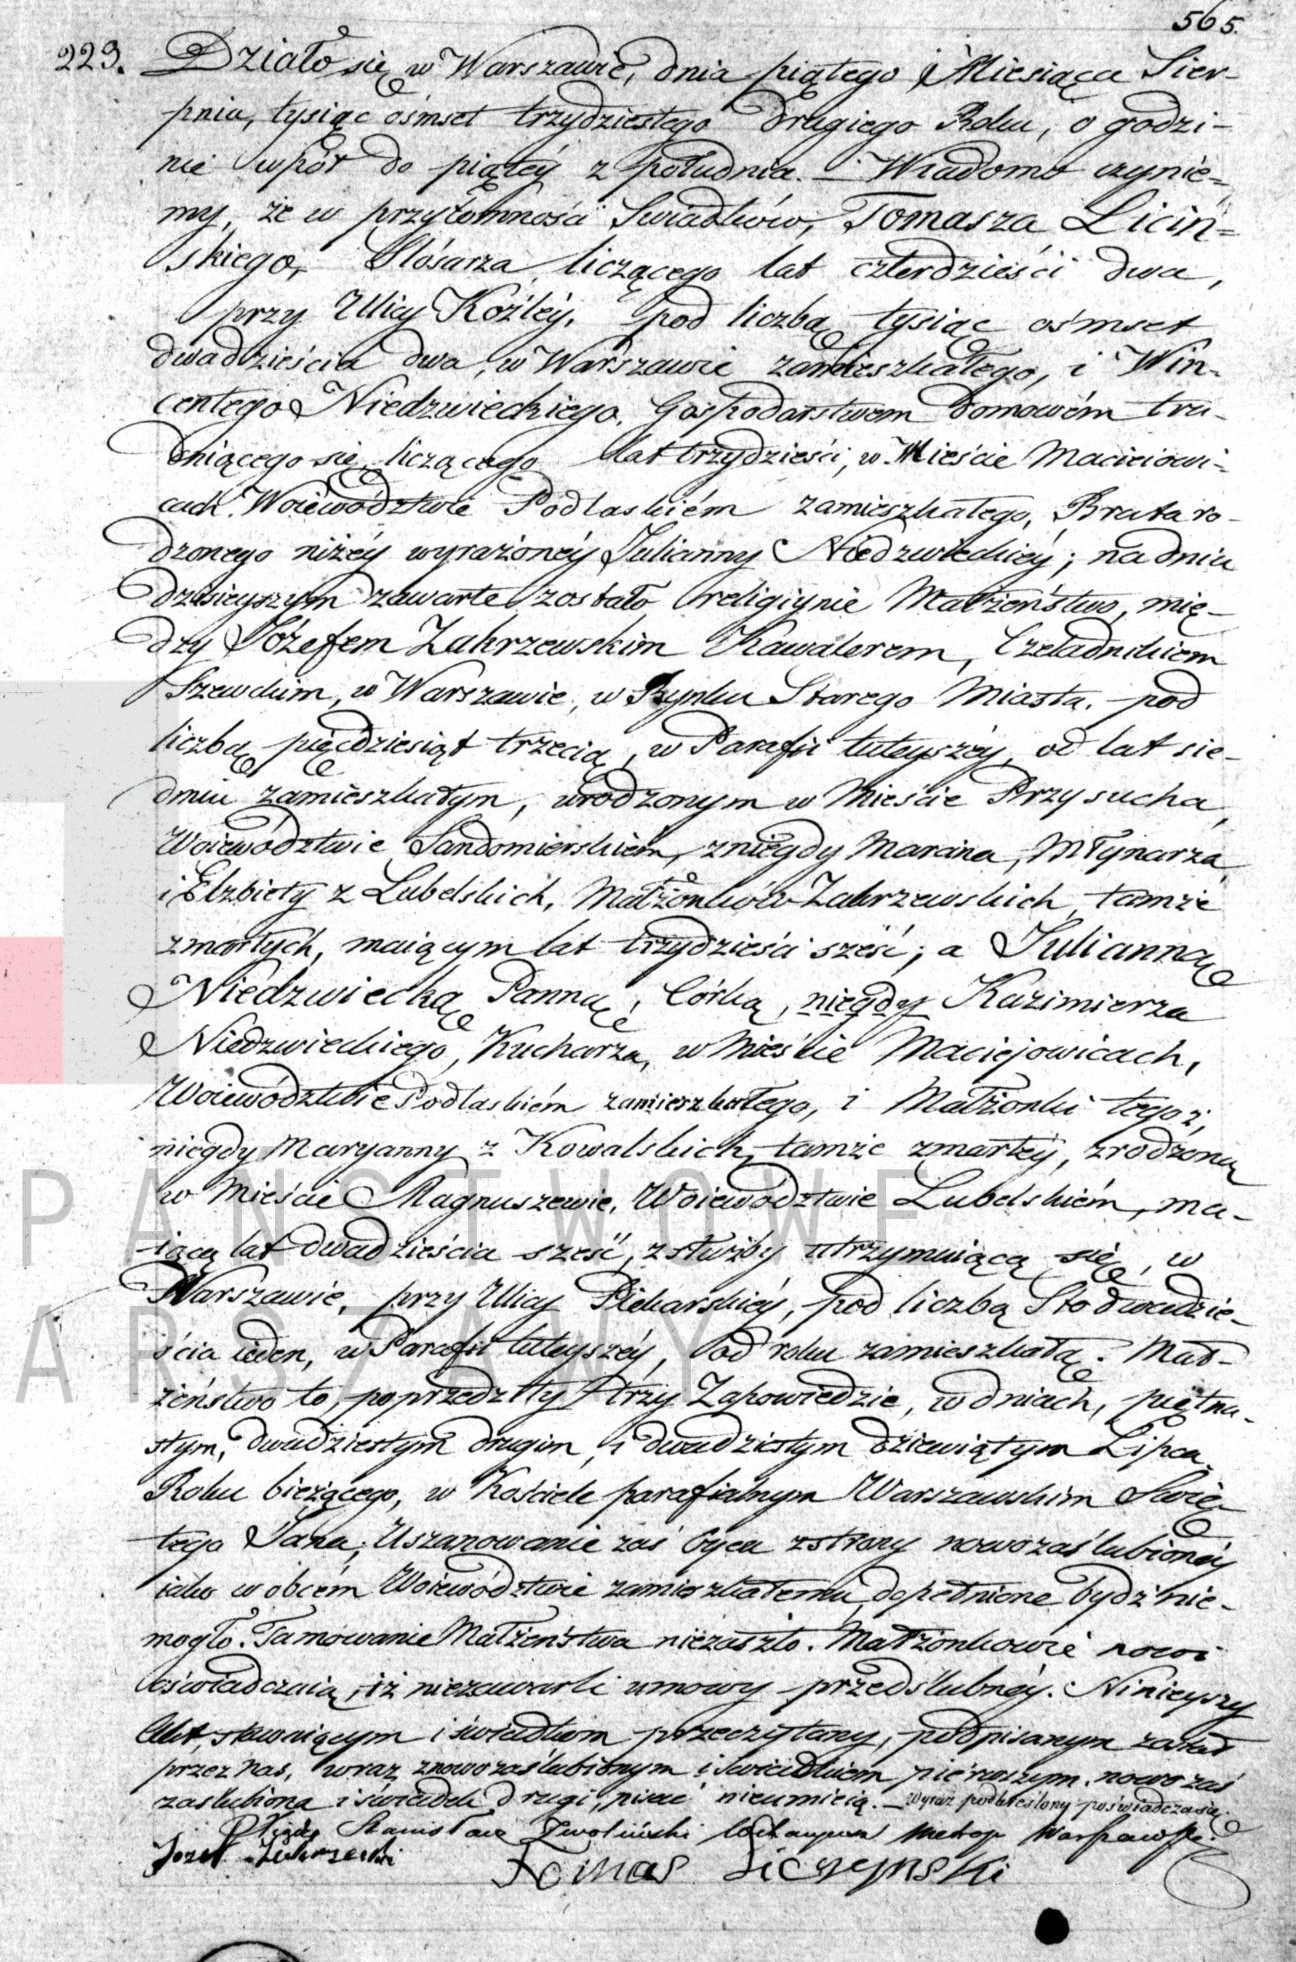 565.
223. Działo się w Warszawie, dnia piątego Miesiąca Sier-
pnia, tysiąc ośmset trzydziestego drugiego Roku, o godzi-
nie wpół do piątéy z południa. — Wiadomo czynie-
my, że w przytomności Swiadków, Tomasza Liciń-
skiego, Slósarza, liczącego lat czterdzieści dwa,
przy Ulicy Koźléy, pod liczbą tysiąc ośmset
dwadzieścia dwa, w Warszawie zamieszkałego, i Win-
centego Niedzwieckiego, Gospodarstwem domowém tru-
dniącego się, liczącego lat trzydzieści, w Mieście Macieiowi-
cach Woiewództwie Podlaskiém zamieszkałego, Brata ro-
dzonego niżéy wyrażonéy Julianny Niedzwieckiéy; na dniu
dzisieyszym zawarte zostało religiynie Małżeństwo, mię-
dzy Józefem Zakrzewskim Kawalerem, Czeladnikiem
Szewckim, w Warszawie, w Rynku Starego Miasta, pod
liczbą pięćdziesiąt trzecią, w Parafii tuteyszéy, od lat sie-
dmiu zamieszkałym, urodzonym w Mieście Przysucha,
Woiewództwie Sandomierskiém, z niegdy Marcina, Młynarza,
i Elżbiety z Lubelskich, Małżonków Zakrzewskich, tamże
zmarłych, maiącym lat trzydzieści sześć; a Julianną
Niedzwiecką Panną, Córką, niegdy Kazimierza
Niedzwieckiego, Kucharza, w Mieście Maciejowicach,
Woiewództwie Podlaskiém zamieszkałego, i Małżonki tegoż,
niegdy Maryanny z Kowalskich, tamże zmarłéy, zrodzoną
w Mieście Magnuszewie, Woiewództwie Lubelskiém, ma-
iącą lat dwadzieścia sześć, z służby utrzymuiącą się, w
Warszawie, przy Ulicy Piekarskiéy, pod liczbą Sto dwadzie-
ścia ieden, w Parafii tuteyszéy, od roku zamieszkałą. Mał-
żeństwo to, poprzedziły trzy Zapowiedzie, w dniach, piętna-
stym, dwudziestym drugim, i dwudziestym dziewiątym Lipca,
Roku bieżącego, w Kościele parafialnym Warszawskim Swię-
tego Jana; Uszanowanie zaś Oyca z strony nowozaślubionéy
iako w obcém Woiewództwie zamieszkałemu, dopełnione bydź nie-
mogło. Tamowanie Małżeństwa niezaszło. Małżonkowie nowi
oświadczaią, iż niezawarli umowy przedślubnéy. Ninieyszy
Akt, stawaiącym i świadkom przeczytany, podpisanym został
przez nas, wraz z nowozaślubionym i świadkiem piérwszym, nowo zaś
zaślubiona i świadek drugi, pisać nieumieią. — Wyraz podkreślony poświadcza się.
Xiądz Stanisław Zwoliński Wikaryusz Metrop Warszawski.
Jozef Zakrzewski
Tomas Liczynski
PAŃSTWOWE
ARSZAWY